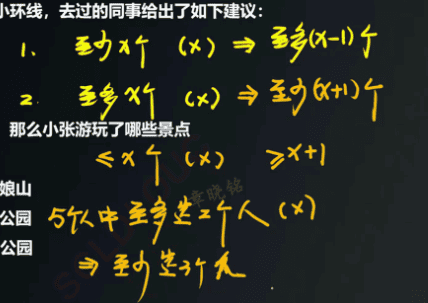 小环线，去过的同事给出了如下建议：
1. 至少x个 (x) ⇒ 至多(x-1)个
2. 至多x个 (x) ⇒ 至少(x+1)个
那么小张游玩了哪些景点
≤x个 (x) ≥x+1
娘山
公园 5个人中至多选2个人 (x)
公园 ⇒ 至少选3个人